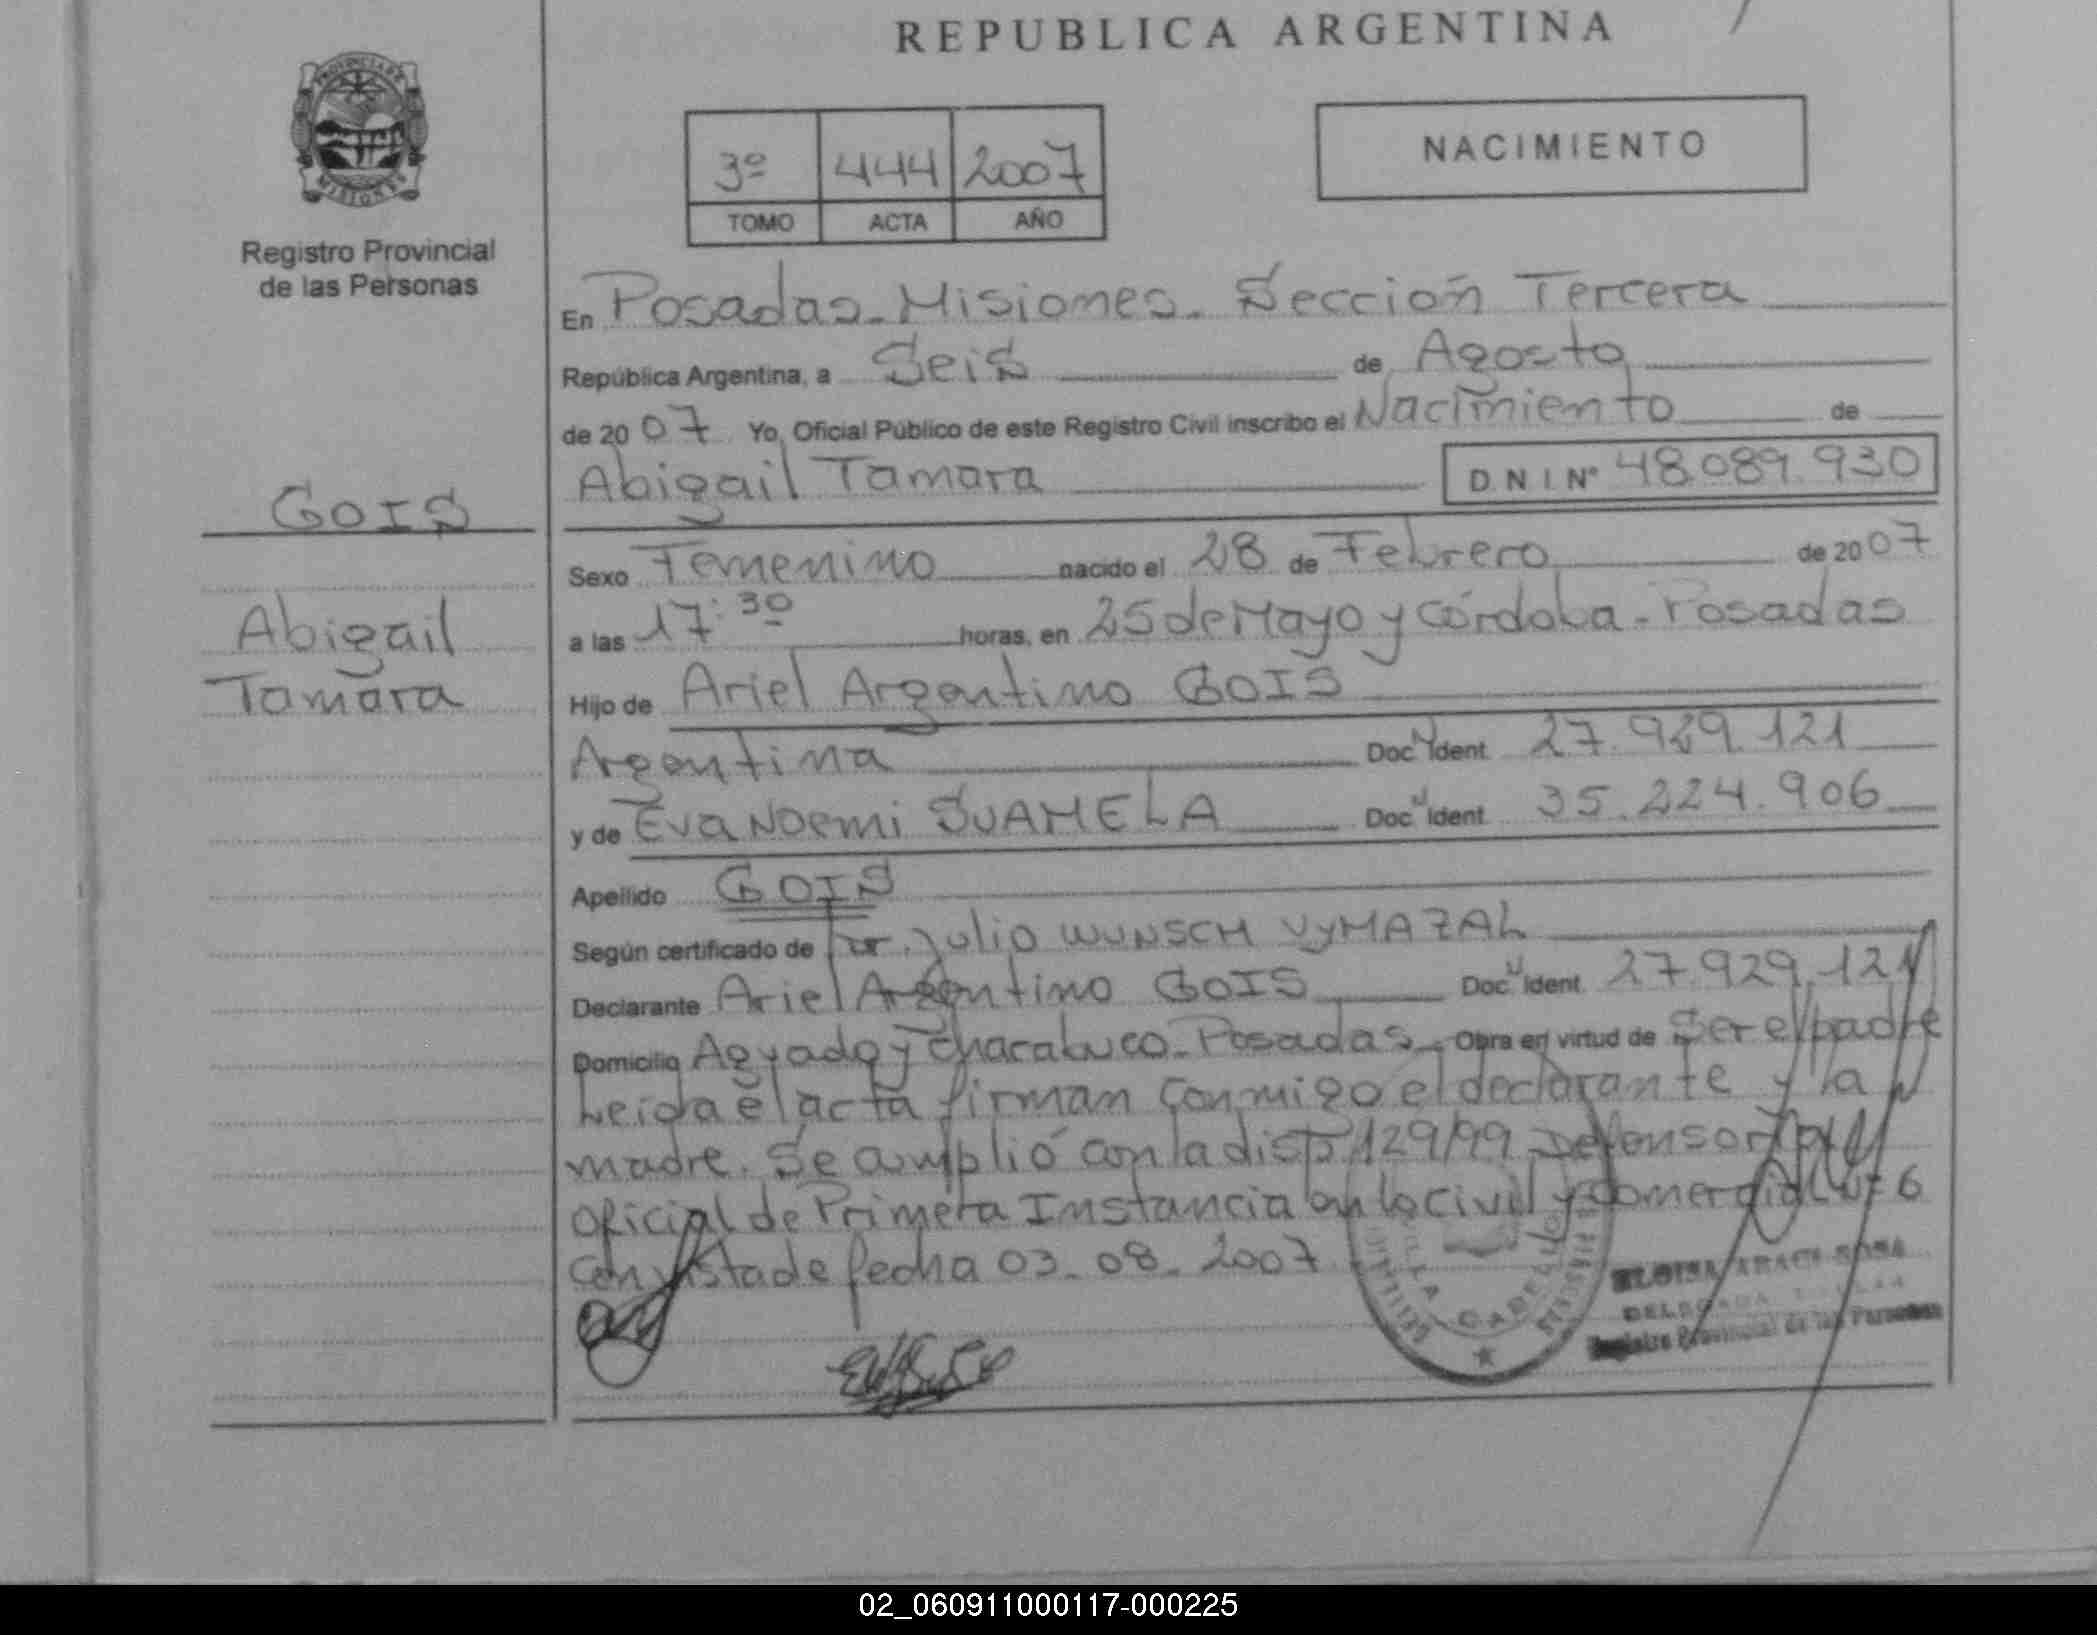 REPUBLICA ARGENTINA
PROVINCIA DE
MISIONES
Registro Provincial
de las Personas
3º 444 2007
TOMO ACTA AÑO
NACIMIENTO
En Posadas-Misiones. Sección Tercera
República Argentina, a Seis de Agosto
de 2007 Yo, Oficial Público de este Registro Civil inscribo el Nacimiento de
Abigail Tamara D.N.I Nº 48.089.930
GOIS
Sexo Femenino nacido el 28 de Febrero de 2007
Abigail
Tamara
a las 17:30 horas, en 25 de Mayo y Córdoba - Posadas
Hijo de Ariel Argentino GOIS
Argentina Doc N Ident. 27.929.121
y de Eva Noemi SUAMELA Doc N Ident. 35.224.906
Apellido GOIS
Según certificado de Dr. Julio WUNSCH VYMAZAL
Declarante Ariel Argentino GOIS Doc N Ident. 27.929.121
Domicilio Aguado y Chacabuco - Posadas - Obra en virtud de Ser el padre
Leida el acta firman conmigo el declarante y la
madre. Se amplió con la disp 129/99 Defensoría
oficial de Primera Instancia en lo Civil y Comercial Nº 6
Con vista de fecha 03-08-2007
VILLA CABELLO
SOSA
Registro Provincial de las Personas
02_060911000117-000225